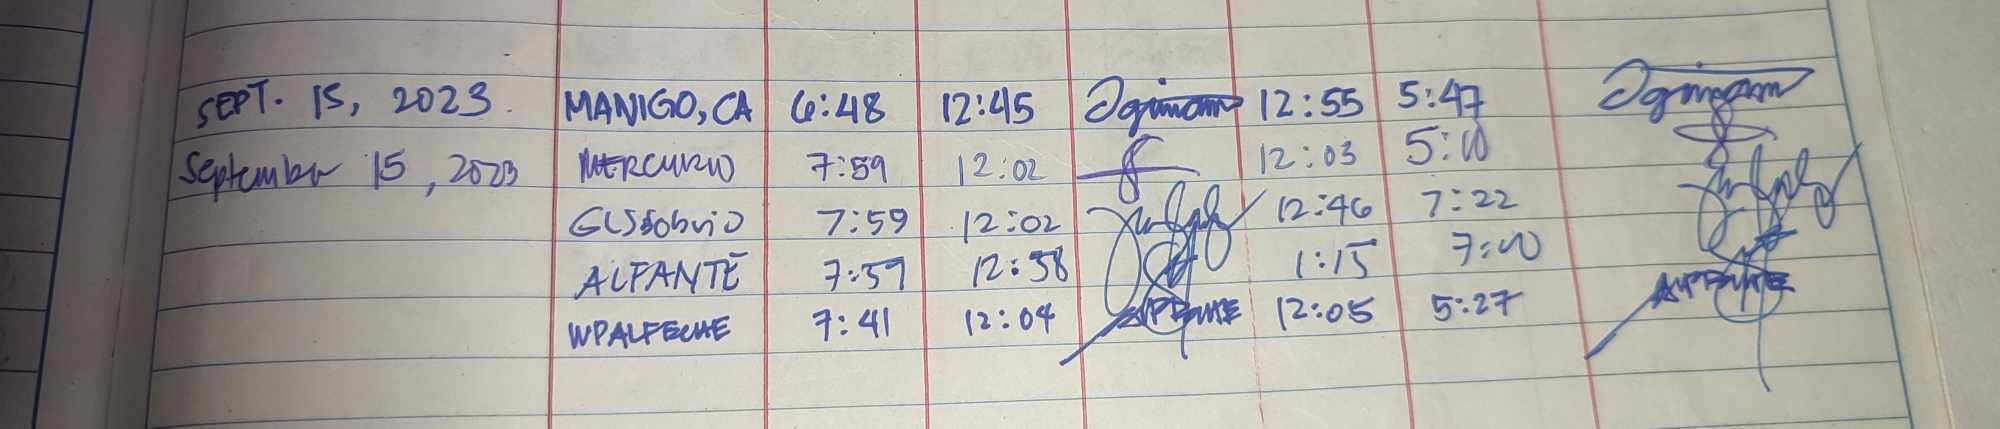 SEPT. 15, 2023. MANIGO, CA 6:48 12:45 12:55 5:47
September 15, 2023 MERCURIO 7:59 12:02 12:03 5:10
7:59 12:02 12:46 7:22
ALFANTE 7:57 12:58 1:15 7:00
WPALFECHE 7:41 12:04 12:05 5:27